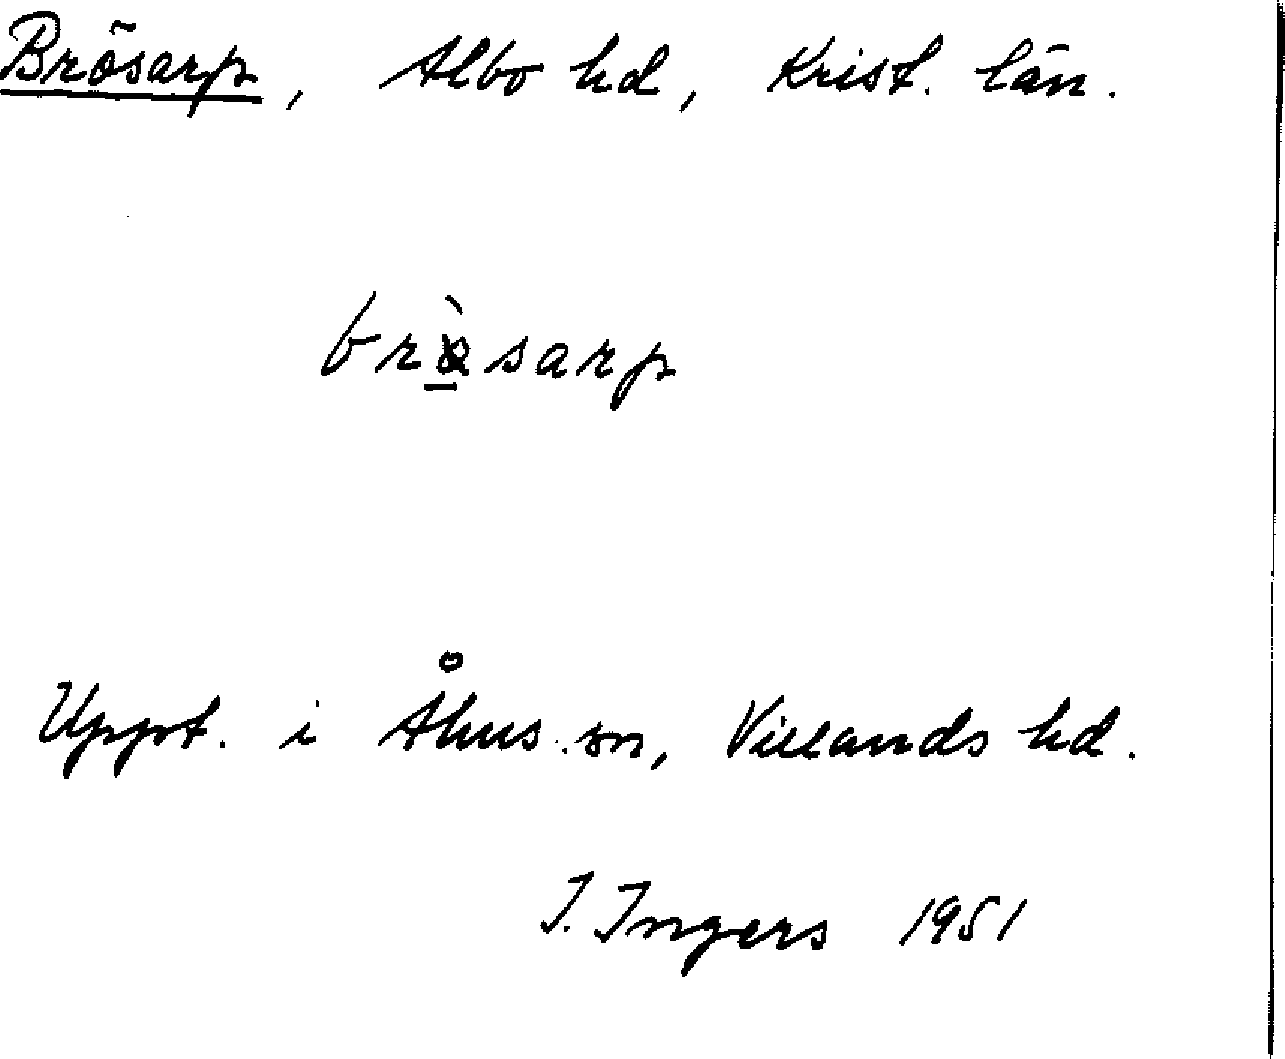 Brösarp, Albo hd, Krist. län.
brø̀sarp
Uppt. i Åhus sn, Villands hd.
I. Ingers 1951